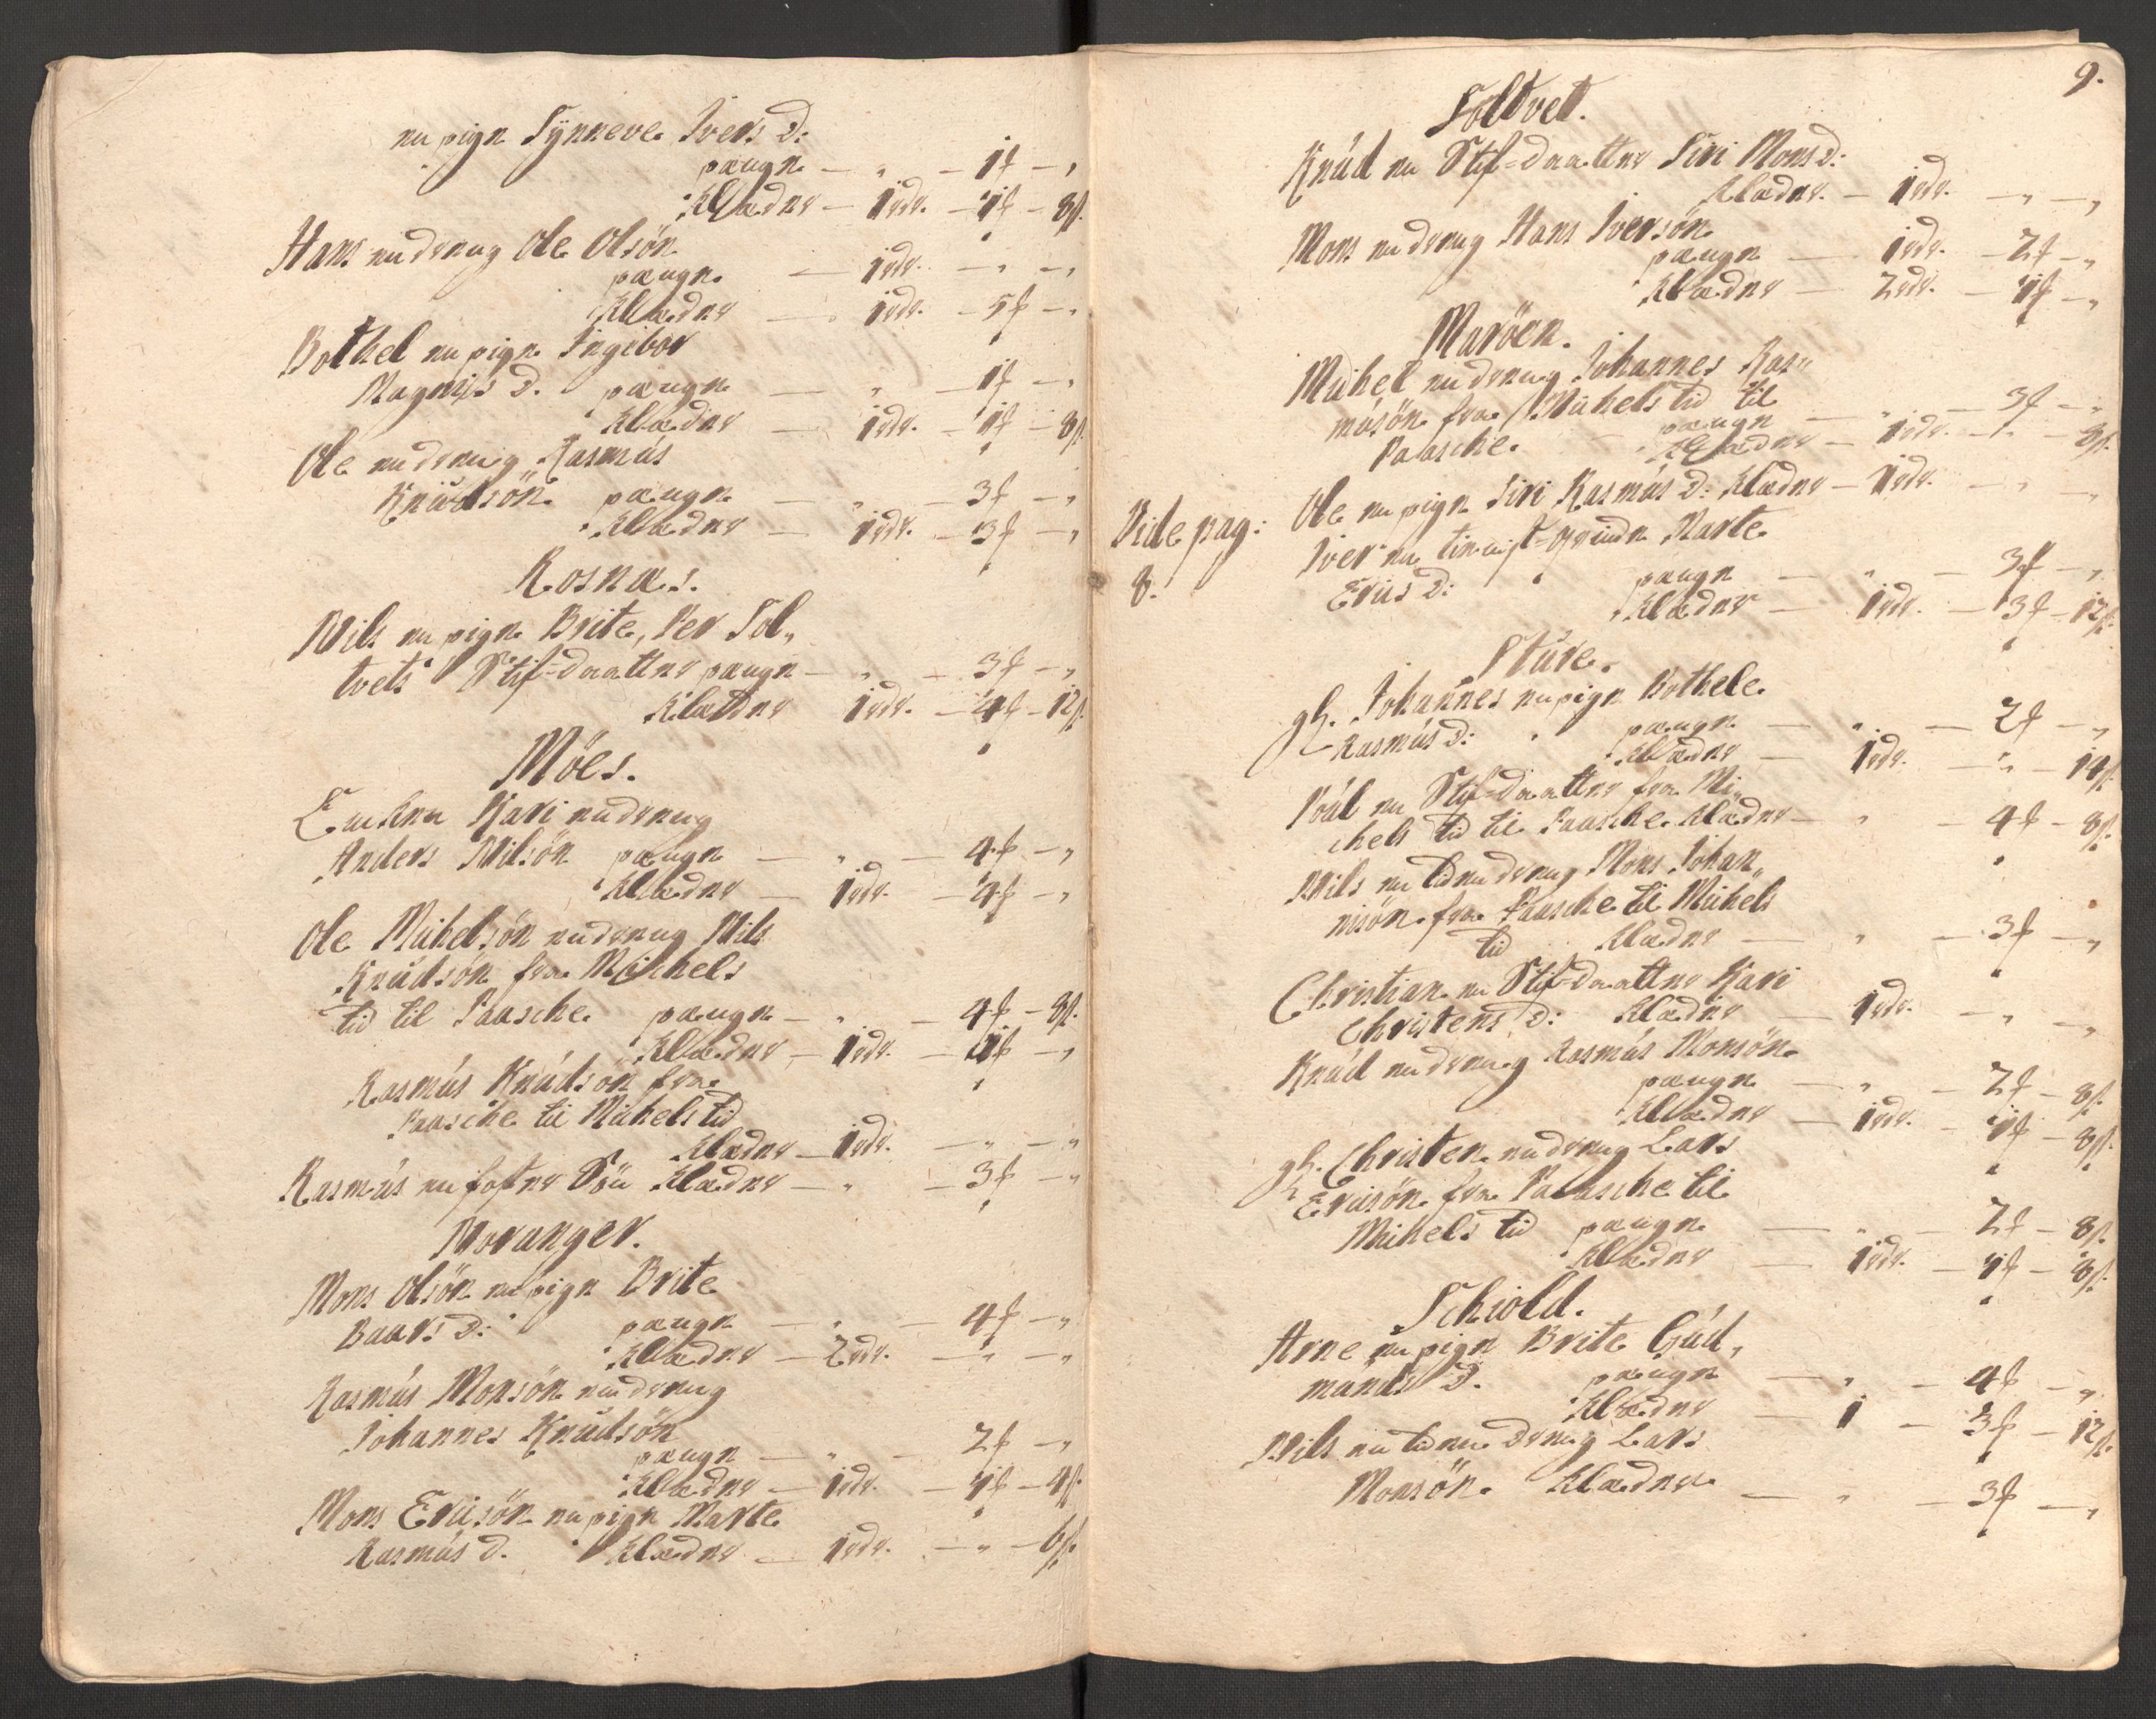 en pign Synneve Ivers D:
pænge — „ — 1 f — „
Klæder — 1 rdr. — 1 f — 8 s.
Hans en dreng Ole Olsøn
pænge — 1 rdr. — „ — „
Klæder — 1 rdr. — 5 f — „
Bothel en pige Ingebor
Magnis D. pænge — „ — 1 f — „
Klæder — 1 rdr. — 1 f — 8 s.
Ole en dreng Rasmus
Knudsøn pænge — „ — 3 f — „
Klæder — 1 rdr. — 3 f — „
Rosnæs.
Nils en pige Brite, Per Sol„
tvets Stif-daatter pænge — „ — 3 f — „
Klæder 1 rdr. — 4 f — 12 s.
Möes.
Enken Kari en dreng
Anders Nilsøn pænge — „ — 4 f — „
Klæder — 1 rdr. — 4 f — „
Ole Michelsøn en dreng Nils
Knudsøn fra Michels
tid til Paasche pænge — „ — 4 f — 8 s.
Klæder — 1 rdr. — 1 f — „
Rasmus Knudsøn fra
Paasche til Michels tid
Klæder — 1 rdr. — „ — „
Rasmus en foster Søn Klæder — „ — 3 f — „
Noranger.
Mons Olsøn en pign Brite
Baars D: pænge — „ — 4 f — „
Klæder — 2 rdr. — „ — „
Rasmus Monsøn en dreng
Johannes Knudsøn
pænge — „ — 2 f — „
Klæder — 1 rdr. — 1 f — 4 s.
Mons Ericsøn en pign Marte
Rasmus d. Klæder — 1 rdr. — „ — 6 s.
9.
Soltvet.
Knud en Stif-daatter Siri Mons D:
Klæder — 1 rdr. — „ — „
Mons en dreng Hans Iversøn
pænge — 1 rdr. — 2 f — „
Klæder — 2 rdr. — 1 f — „
Maröen.
Michel en dreng Johannes Ras„
musøn fra Michels tid til
Paasche. pænge — „ — 3 f — „
Klæder — 1 rdr. — „ — 8 s.
Ole en pign Siri Rasmus D: Klæder — 1 rdr. — „ — „
Vide pag:
8.
Iver en tienist-qvinde Marte
Erics D: pænge — „ — 3 f — „
Klæder — 1 rdr. — 3 f — 12 s.
Sture.
gl. Johannes en pign Bothele
Rasmus D: pænge — „ — 2 f — „
Klæder — 1 rdr. — „ — 14 s.
Poul en Stif-daatter fra Mi„
chels tid til Paasche Klæder — „ — 4 f — 8 s.
Nils en liden dreng Mons Johan„
nisøn fra Paasche til Michels
tid Klæder — „ — 3 f — „
Christian en Stif-daatter Kari
Christens D: Klæder — 1 rdr. — „ — „
Knud en dreng Rasmus Monsøn
pænge — „ — 2 f — 8 s.
Klæder — 1 rdr. — 1 f — 8 s.
gl. Christen en dreng Lars
Ericsøn fra Paasche til
Michels tid pænge — „ — 2 f — 8 s.
Klæder — 1 rdr. — 1 f — 8 s.
Schiold.
Arne en pign Brite Gud„
mands D. pænge — „ — 4 f — „
Klæder — 1 — 3 f — 12 s.
Nils en liden dreng Lars
Monsøn. Klæder — „ — 3 f — „